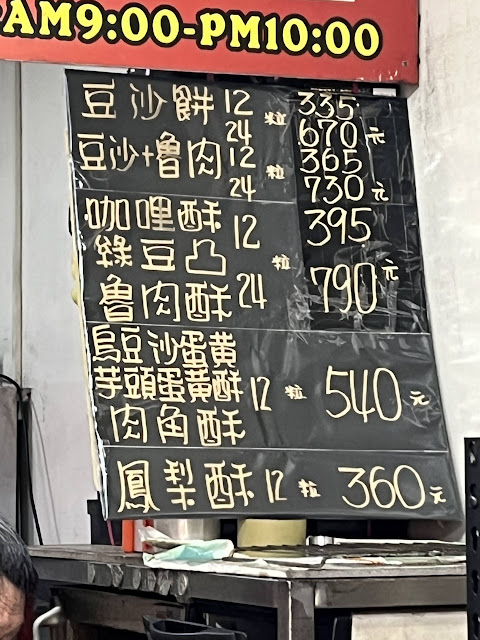 AM9:00-PM10:00
豆沙餅 12 粒 335
24 670元
豆沙+魯肉 12 粒 365
24 730元
咖哩酥 12 395
綠豆凸 粒
魯肉酥 24 790元
烏豆沙蛋黄
芋頭蛋黃酥 12粒 540元
肉角酥
鳳梨酥 12粒 360元